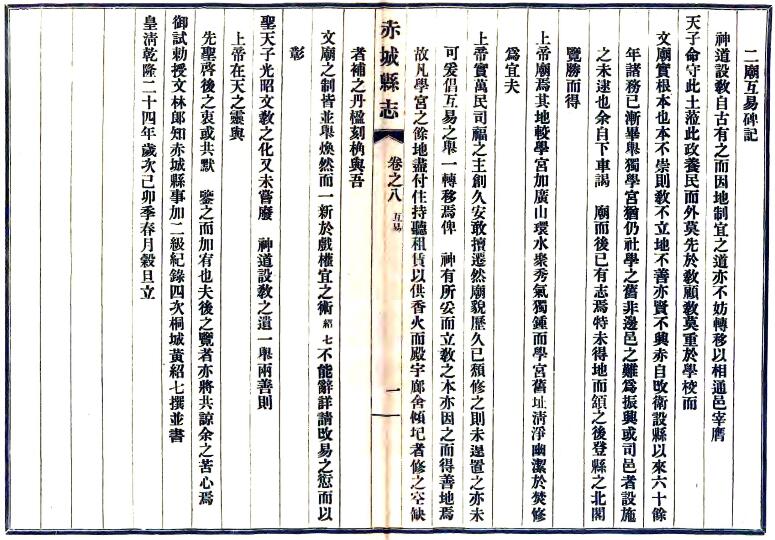 二廟互易碑記
神道設敎自古有之而因地制宜之道亦不妨轉移以相通邑宰膺
天子命守此土蒞此政養民而外莫先於敎顧敎莫重於學校而
文廟實根本也本不崇則敎不立地不善亦賢不興赤自改衛設縣以來六十餘
年諸務已漸畢舉獨學宮猶仍社學之舊非邊邑之難爲振興或司邑者設施
之未逮也余自下車謁　廟而後已有志焉特未得地而頷之後登縣之北閣
覽勝而得
上帝廟焉其地較學宮加廣山環水衆秀氣獨鍾而學宮舊址淸淨幽潔於焚修
爲宜夫
上帝實萬民司福之主創久安敢擅遷然廟貌歷久已頽修之則未遑置之亦未
可爰倡互易之舉一轉移焉俾　神有所妥而立敎之本亦因之而得善地焉
故凡學宮之餘地盡付住持聽租賃以供香火而殿宇廊舍傾圮者修之空缺
者補之丹楹刻桷與吾
赤城縣志
卷之八
互易
一
文廟之制皆並舉煥然而一新於戲權宜之術紹七不能辭詳請改易之愆而以
彰
聖天子光昭文敎之化又未嘗廢　神道設敎之遺一舉兩善則
上帝在天之靈與
先聖啓後之衷或共默　鑒之而加宥也夫後之覽者亦將共諒余之苦心焉
御試勅授文林郎知赤城縣事加二級紀錄四次桐城黃紹七撰並書
皇淸乾隆二十四年歲次己卯季春月穀旦立